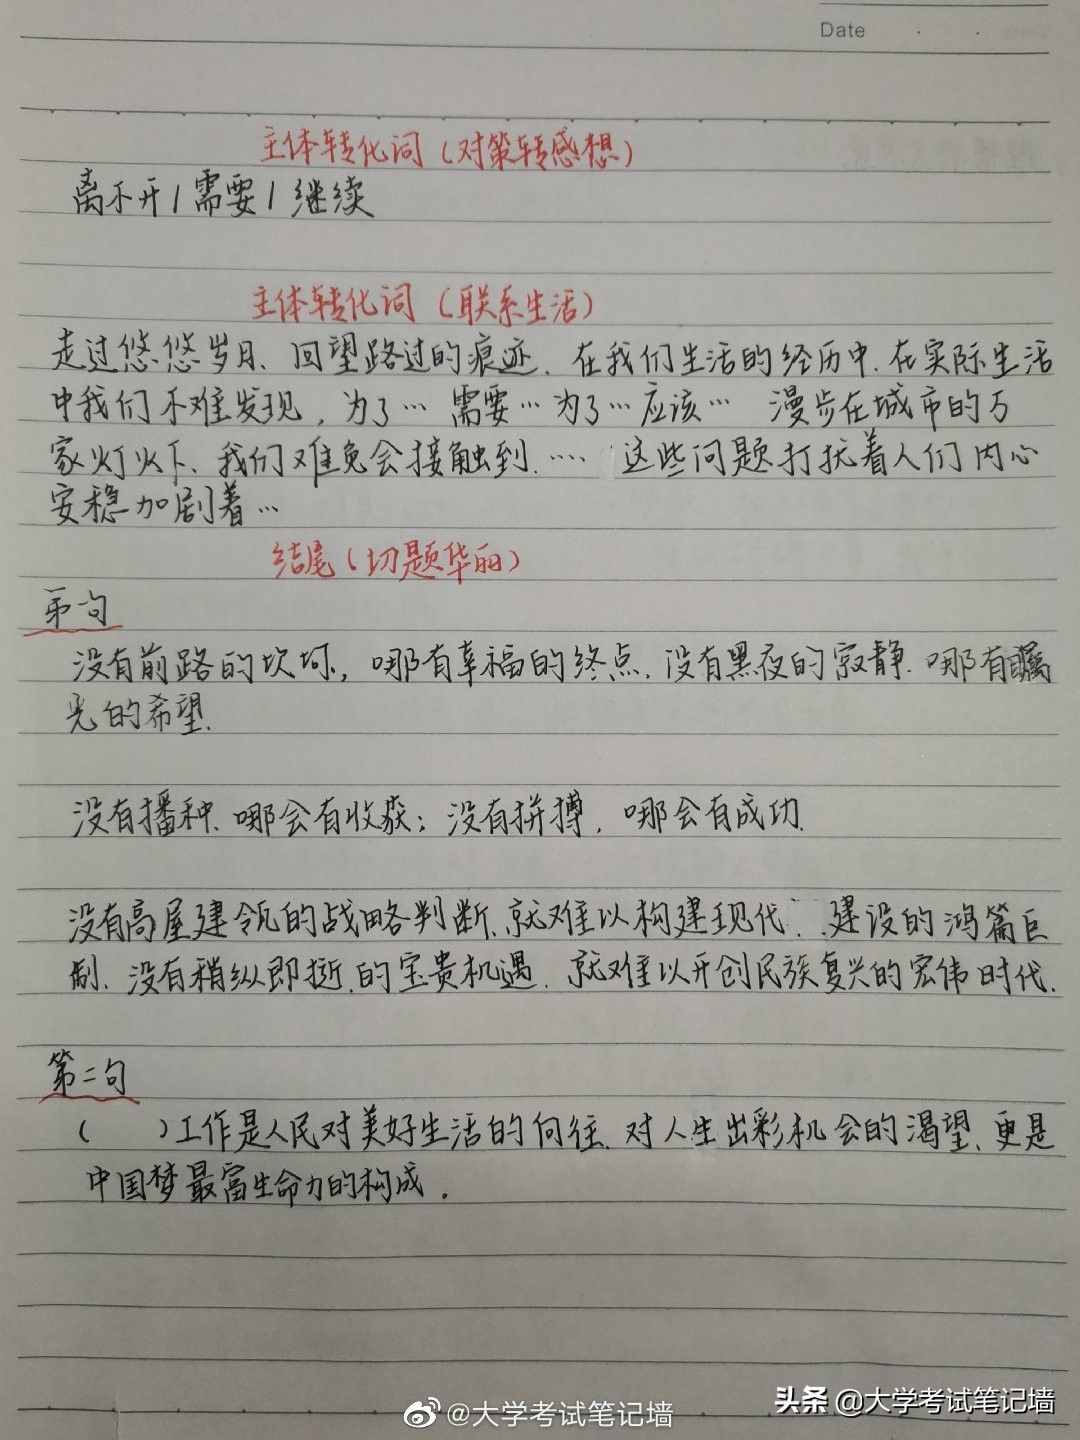 Date
主体转化词（对策转感想）
离不开/需要/继续
主体转化词（联系生活）
走过悠悠岁月、回望路过的痕迹、在我们生活的经历中、在实际生活
中我们不难发现，为了…需要…为了…应该… 漫步在城市的万
家灯火下、我们难免会接触到、…… 这些问题打扰着人们内心
安稳加剧着…
结尾（切题华丽）
第一句
没有前路的坎坷，哪有幸福的终点、没有黑夜的寂静、哪有曙
光的希望、
没有播种、哪会有收获；没有拼搏，哪会有成功、
没有高屋建瓴的战略判断、就难以构建现代、建设的鸿篇巨
制、没有稍纵即逝的宝贵机遇、就难以开创民族复兴的宏伟时代、
第二句
（ ）工作是人民对美好生活的向往、对人生出彩机会的渴望、更是
中国梦最富生命力的构成．
@大学考试笔记墙
头条 @大学考试笔记墙